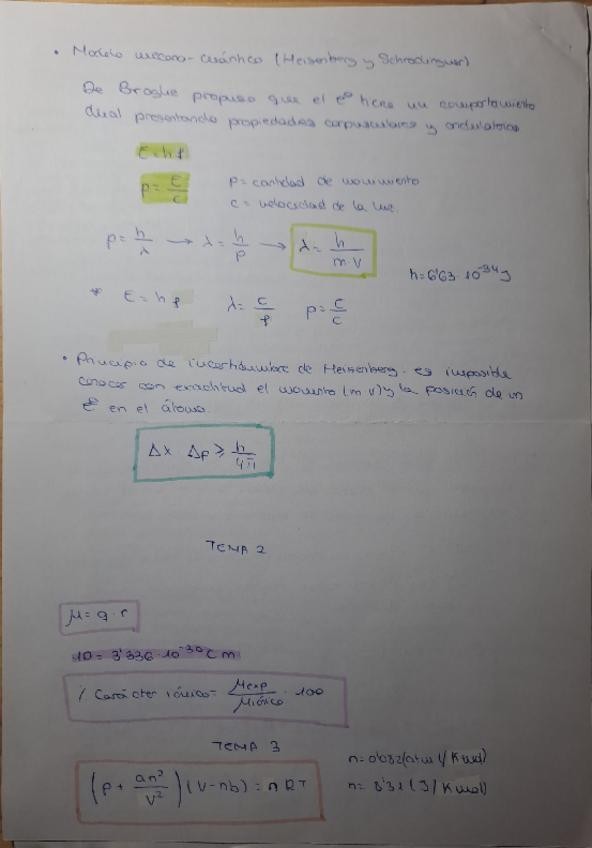 • Modelo mecano-cuántico (Heisenberg y Schrodinguer)
De Broglie propuso que el e⁻ tiene un comportamiento
dual presentando propiedades corpusculares y ondulatorias
E = h f
p = E/c    p = cantidad de movimiento
c = velocidad de la luz.
p = h/λ → λ = h/p → λ = h/m·v
h = 6'63·10⁻³⁴ J
* E = h f    λ = c/f    p = E/c
• Principio de incertidumbre de Heisenberg. es imposible
conocer con exactitud el momento (m v) y la posición de un
e⁻ en el átomo.
Δx Δp ≥ h/4π
TEMA 2
μ = q · r
1D = 3'336·10⁻³⁰ C m
% Carácter iónico = μexp/μiónico · 100
TEMA 3
(p + an²/v²) (v-nb) = n R T